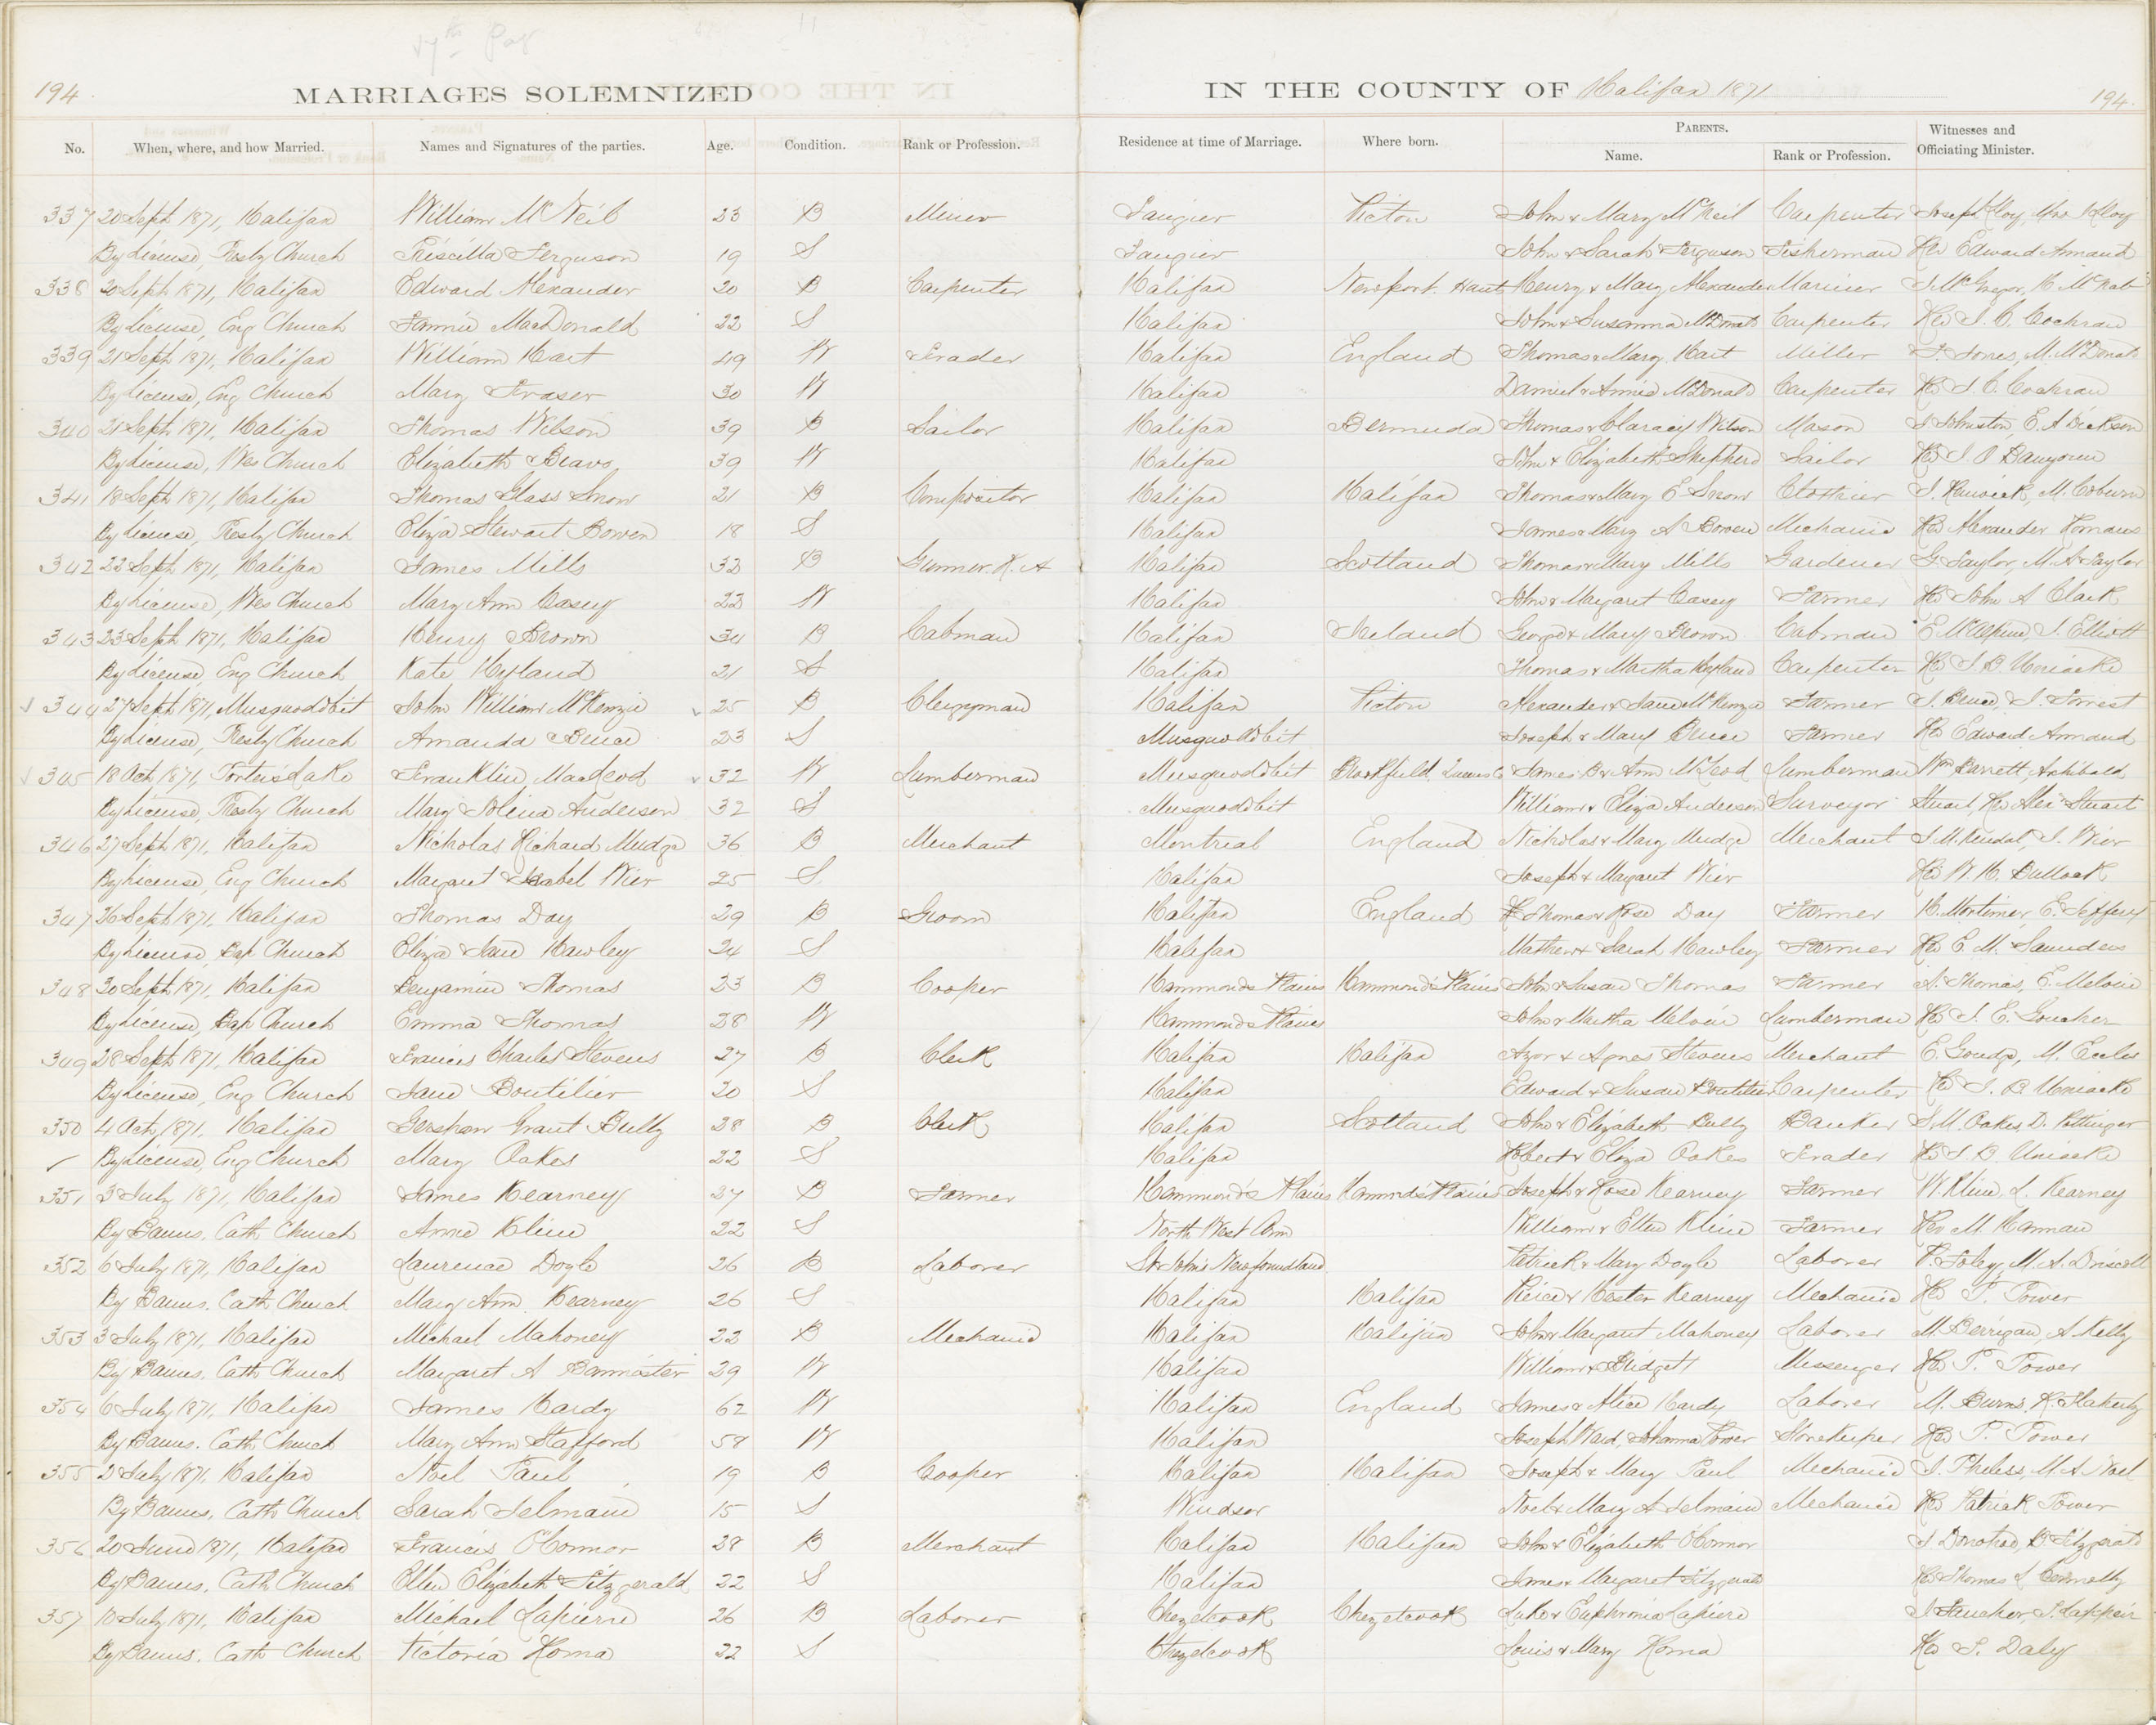 194.
MARRIAGES SOLEMNIZED
IN THE COUNTY OF Halifax 1871
194.
No. When, where, and how Married. Names and Signatures of the parties. Age. Condition. Rank or Profession. Residence at time of Marriage. Where born. PARENTS. Name. Rank or Profession. Witnesses and Officiating Minister.
337 20 Sept 1871, Halifax William McNeil 23 B Miner Tangier Pictou John & Mary McNeil Carpenter Joseph Hoy, Mrs Hoy
By License, Presby Church Priscilla Ferguson 19 S Tangier John & Sarah Ferguson Fisherman Rev Edward Annand
338 20 Sept 1871, Halifax Edward Alexander 20 B Carpenter Halifax Newport. Hants Henry & Mary Alexander Mariner J. McGregor, H. McNab
By License, Eng Church Fannie MacDonald 22 S Halifax John & Susanna McDonald Carpenter Rev J. C. Cochran
339 21 Sept 1871, Halifax William Hart 49 W Trader Halifax England Thomas & Mary Hart Miller T. Jones, M. McDonald
By License, Eng Church Mary Fraser 30 W Halifax Daniel & Annie McDonald Carpenter Rev J. C. Cochran
340 21 Sept 1871, Halifax Thomas Wilson 39 B Sailor Halifax Bermuda Thomas & Wilson Mason J Johnston, E. A Dickson
By License, Wes Church Elizabeth 39 W Halifax John & Elizabeth Shepherd Sailor Rev
341 18 Sept 1871, Halifax Thomas Glass Snow 21 B Compositor Halifax Halifax Thomas & Mary E Snow Clothier J. Renwick, M. Coburn
By License, Presby Church Eliza Stewart Bowen 18 S Halifax James & Mary A Bowen Mechanic Rev Alexander
342 22 Sept 1871, Halifax James Mills 32 B Gunner R. A Halifax Scotland Thomas & Mary Mills Gardener G. Taylor, M. A Taylor
By License, Wes Church Mary Ann Casey 22 W Halifax John & Margaret Casey Farmer Rev John A Clark
343 23 Sept 1871, Halifax Henry Brown 34 B Cabman Halifax Ireland George & Mary Brown Cabman E. McAlpine J. Elliott
By License, Eng Church Kate Hyland 21 S Halifax Thomas & Martha Hyland Carpenter Rev J. B Uniacke
344 27 Sept 1871, Musquodobit John William McKenzie 25 B Clergyman Halifax Pictou Alexander & Jane McKenzie Farmer J. Bruce, J. Forrest
By License, Presby Church Amanda Bruce 23 S Musquodobit Joseph & Mary Bruce Farmer Rev Edward Annand
345 18 Oct 1871, Porter's Lake Franklin MacLeod 32 W Lumberman Musquodobit Brookfield Queens Co James B & Ann McLeod Lumberman Wm Barrett, Archibald
By License, Presby Church Mary Anderson 32 S Musquodobit William & Eliza Anderson Surveyor Stuart, Rev Alex Stuart
346 27 Sept 1871, Halifax Nicholas Richard Mudge 36 B Merchant Montreal England Nicholas & Mary Mudge Merchant J. M. J. Wier
By License, Eng Church Margaret Isabel Wier 25 S Halifax Joseph & Margaret Wier Rev W. H. Bullock
347 26 Sept 1871, Halifax Thomas Day 29 B Groom Halifax England Thomas & Rose Day Farmer H. Mortimer, E. Jeffery
By License, Bap Church Eliza Jane Hawley 24 S Halifax Mathew & Sarah Hawley Farmer Rev E. M. Saunders
348 30 Sept 1871, Halifax Benjamin Thomas 23 B Cooper Hammonds Plains Hammond's Plains John & Susan Thomas Farmer A. Thomas, E. Melvin
By License, Bap Church Emma Thomas 28 W Hammonds Plains John & Martha Melvin Lumberman Rev J. E. Goucher
349 28 Sept 1871, Halifax Francis Charles Stevens 27 B Clerk Halifax Halifax Azor & Agnes Stevens Merchant E. Goudge, M. Eccles
By License, Eng Church Jane Boutilier 20 S Halifax Edward & Susan Boutilier Carpenter Rev J. B Uniacke
350 4 Oct, 1871, Halifax Gershom Grant Bully 28 B Clerk Halifax Scotland John & Elizabeth Bully Banker S. M. Oakes, D. Pottinger
By License, Eng Church Mary Oakes 22 S Halifax Robert & Eliza Oakes Trader Rev J. B. Uniacke
351 3 July 1871, Halifax James Kearney 27 B Farmer Hammond's Plains Hammond's Plains Joseph & Rose Kearney Farmer W. Kline, L. Kearney
By Banns, Cath Church Annie Kline 22 S North West Arm William & Ellen Kline Farmer Rev M. Hannan
352 6 July 1871, Halifax Laurence Doyle 26 B Laborer St John's Newfoundland Patrick & Mary Doyle Laborer P. Foley, M. A. Driscoll
By Banns. Cath Church Mary Ann Kearney 26 S Halifax Halifax Peirce & Hester Kearney Mechanic Rev P. Power
353 3 July 1871, Halifax Michael Mahoney 22 B Mechanic Halifax Halifax John & Margaret Mahoney Laborer M. Berrigan, A. Kelly
By Banns. Cath Church Margaret A Bannister 29 W Halifax William & Bridget Messenger Rev P. Power
354 6 July 1871, Halifax James Hardy 62 W Halifax England James & Alice Hardy Laborer M. Burns, K. Flaherty
By Banns. Cath Church Mary Ann Stafford 58 W Halifax Joseph Ward, Johanna Power Storekeeper Rev P. Power
355 2 July 1871, Halifax Noel Paul 19 B Cooper Halifax Halifax Joseph & Mary Paul Mechanic J. Pheliss, M. A. Noel
By Banns, Cath Church Sarah Selmain 15 S Windsor Noel & Mary A Selmain Mechanic Rev Patrick Power
356 20 June 1871, Halifax Francis O'Connor 28 B Merchant Halifax Halifax John & Elizabeth O'Connor J Donohoe, B. Fitzgerald
By Banns, Cath Church Ellen Elizabeth Fitzgerald 22 S Halifax James & Margaret Fitzgerald Rev Thomas L Connolly
357 10 July 1871, Halifax Michael Lapierre 26 B Laborer Chezetcook Chezetcook Luke & Euphronia Lapierre
By Banns. Cath Church Victoria Roma 22 S Chezetcook Louis & Mary Roma Rev J. Daly